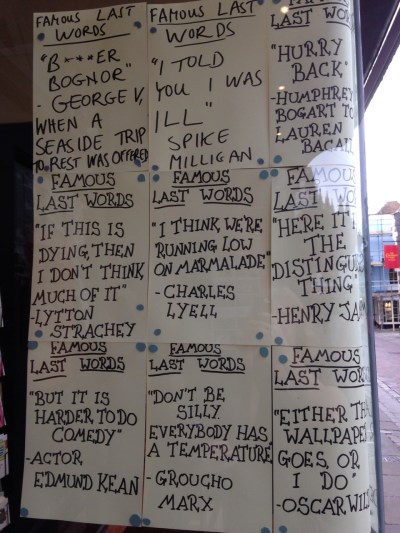 FAMOUS LAST
WORDS
"B****ER
BOGNOR"
- GEORGE V,
WHEN A
SEASIDE TRIP
TO REST WAS OFFERED
FAMOUS LAST
WORDS
"I TOLD
YOU I WAS
ILL"
SPIKE
MILLIGAN
FAMOUS
LAST WORDS
"HURRY
BACK"
-HUMPHREY
BOGART TO
LAUREN
BACALL
FAMOUS
LAST WORDS
"IF THIS IS
DYING, THEN
I DON'T THINK
MUCH OF IT"
-LYTTON
STRACHEY
FAMOUS
LAST WORDS
"I THINK, WE'RE
RUNNING LOW
ON MARMALADE"
- CHARLES
LYELL
FAMOUS
LAST
"HERE IT
THE
THING"
-HENRY
FAMOUS
LAST WORDS
"BUT IT IS
HARDER TO DO
COMEDY"
-ACTOR
EDMUND KEAN
FAMOUS
LAST WORDS
"DON'T BE
SILLY.
EVERYBODY HAS
A TEMPERATURE"
- GROUCHO
MARX
FAMOUS
LAST
"EITHER
WALLPAPER
GOES, OR
I DO"
-OSCAR